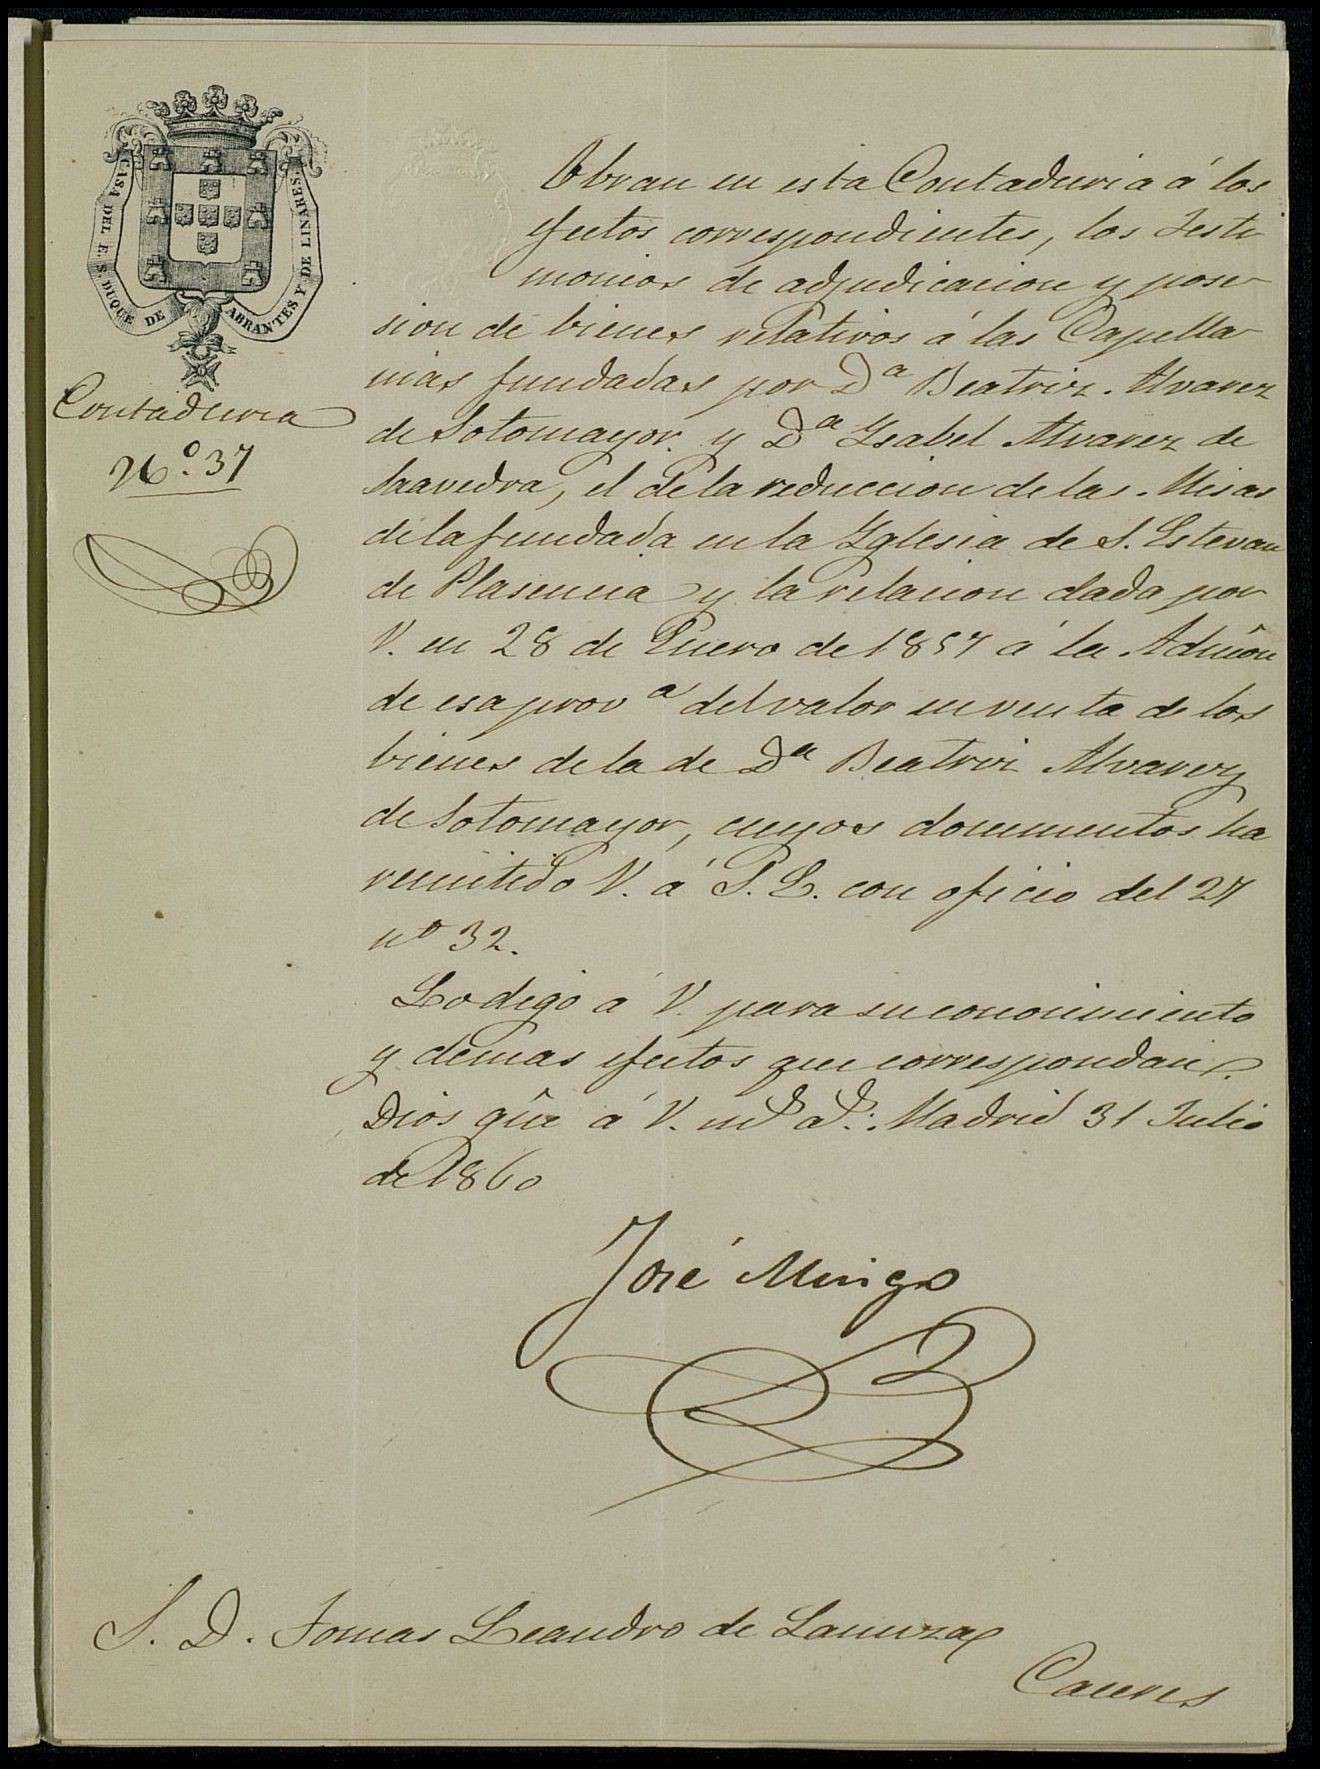 CASA DEL E. S. DUQUE DE ABRANTES Y DE LINARES
Contaduria
Nº. 37
Obran en esta Contaduria á los
efectos correspondientes, los Testi
monios de adjudicacion y pose-
sion de bienes relativos á las Capella
nias fundadas por Dª Beatriz Alvarez
de Sotomayor y Dª Ysabel Alvarez de
Saavedra, el de la reduccion de las Misas
de la fundada en la Yglesia de S. Estevan
de Plasencia y la relacion dada por
V. en 28 de Enero de 1857 á la Admôn
de esa provª del valor en venta de los
bienes de la de Dª Beatriz Alvarez
de Sotomayor, cuyos documentos ha
remitido V. á S. E. con oficio del 27
nº 32.
Lo digo á V. para su conocimiento
y demas efectos que correspondan.
Dios gûe á V. mˢ aˢ: Madrid 31 Julio
de 1860
José Mingo
S. D. Tomas Leandro de Lanuza
Caceres